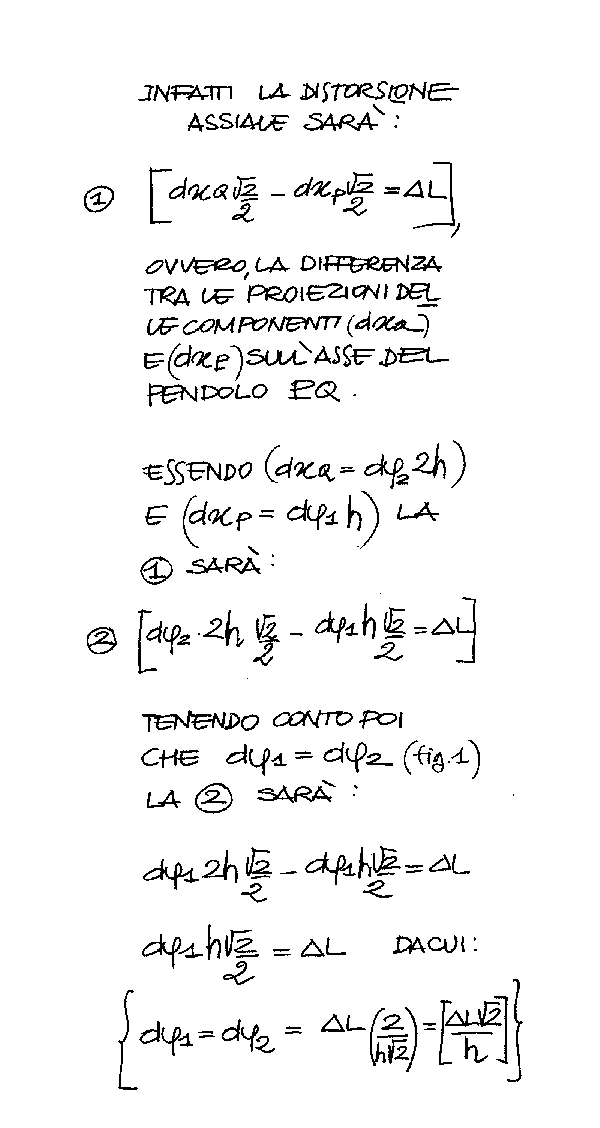 INFATTI LA DISTORSIONE
ASSIALE SARÀ:
① [dxQ √2/2 − dxP √2/2 = ΔL],
OVVERO, LA DIFFERENZA
TRA LE PROIEZIONI DEL
LE COMPONENTI (dxQ)
E (dxP) SULL'ASSE DEL
PENDOLO PQ.
ESSENDO (dxQ = dφ2 2h)
E (dxP = dφ1 h) LA
① SARÀ:
② [dφ2 · 2h √2/2 − dφ1 h √2/2 = ΔL]
TENENDO CONTO POI
CHE dφ1 = dφ2 (fig.1)
LA ② SARÀ:
dφ1 2h √2/2 − dφ1 h √2/2 = ΔL
dφ1 h √2/2 = ΔL DACUI:
{dφ1 = dφ2 = ΔL (2/h√2) = [ΔL√2/h]}